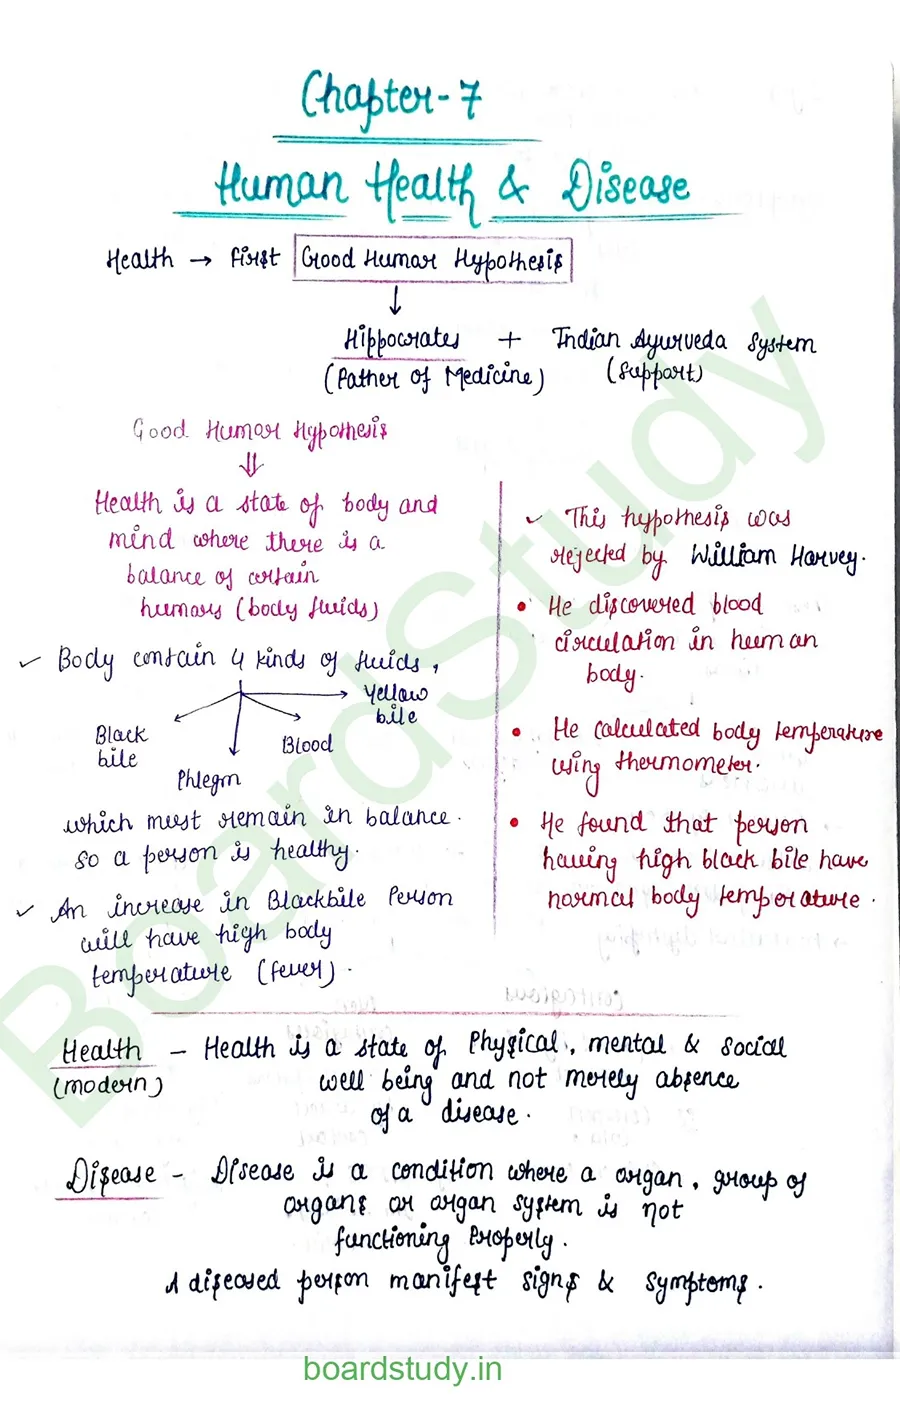 Chapter-7
Human Health & Disease
Health → First Good Humor Hypothesis
↓
Hippocrates + Indian Ayurveda System
(Father of Medicine) (Support)
Good Humor Hypothesis
⇓
Health is a state of body and
mind where there is a
balance of certain
humors (body fluids)
✓ Body contain 4 kinds of fluids,
Yellow
bile
Blood
Phlegm
Black
bile
which must remain in balance.
so a person is healthy.
✓ An increase in Blackbile Person
will have high body
temperature (fever).
✓ This hypothesis was
rejected by William Harvey.
• He discovered blood
circulation in human
body.
• He calculated body temperature
using thermometer.
• He found that person
having high black bile have
normal body temperature.
Health - Health is a state of Physical, mental & social
(modern) well being and not merely absence
of a disease.
Disease - Disease is a condition where a organ, group of
organs or organ system is not
functioning Properly.
A diseased person manifest signs & symptoms.
BoardStudy
boardstudy.in